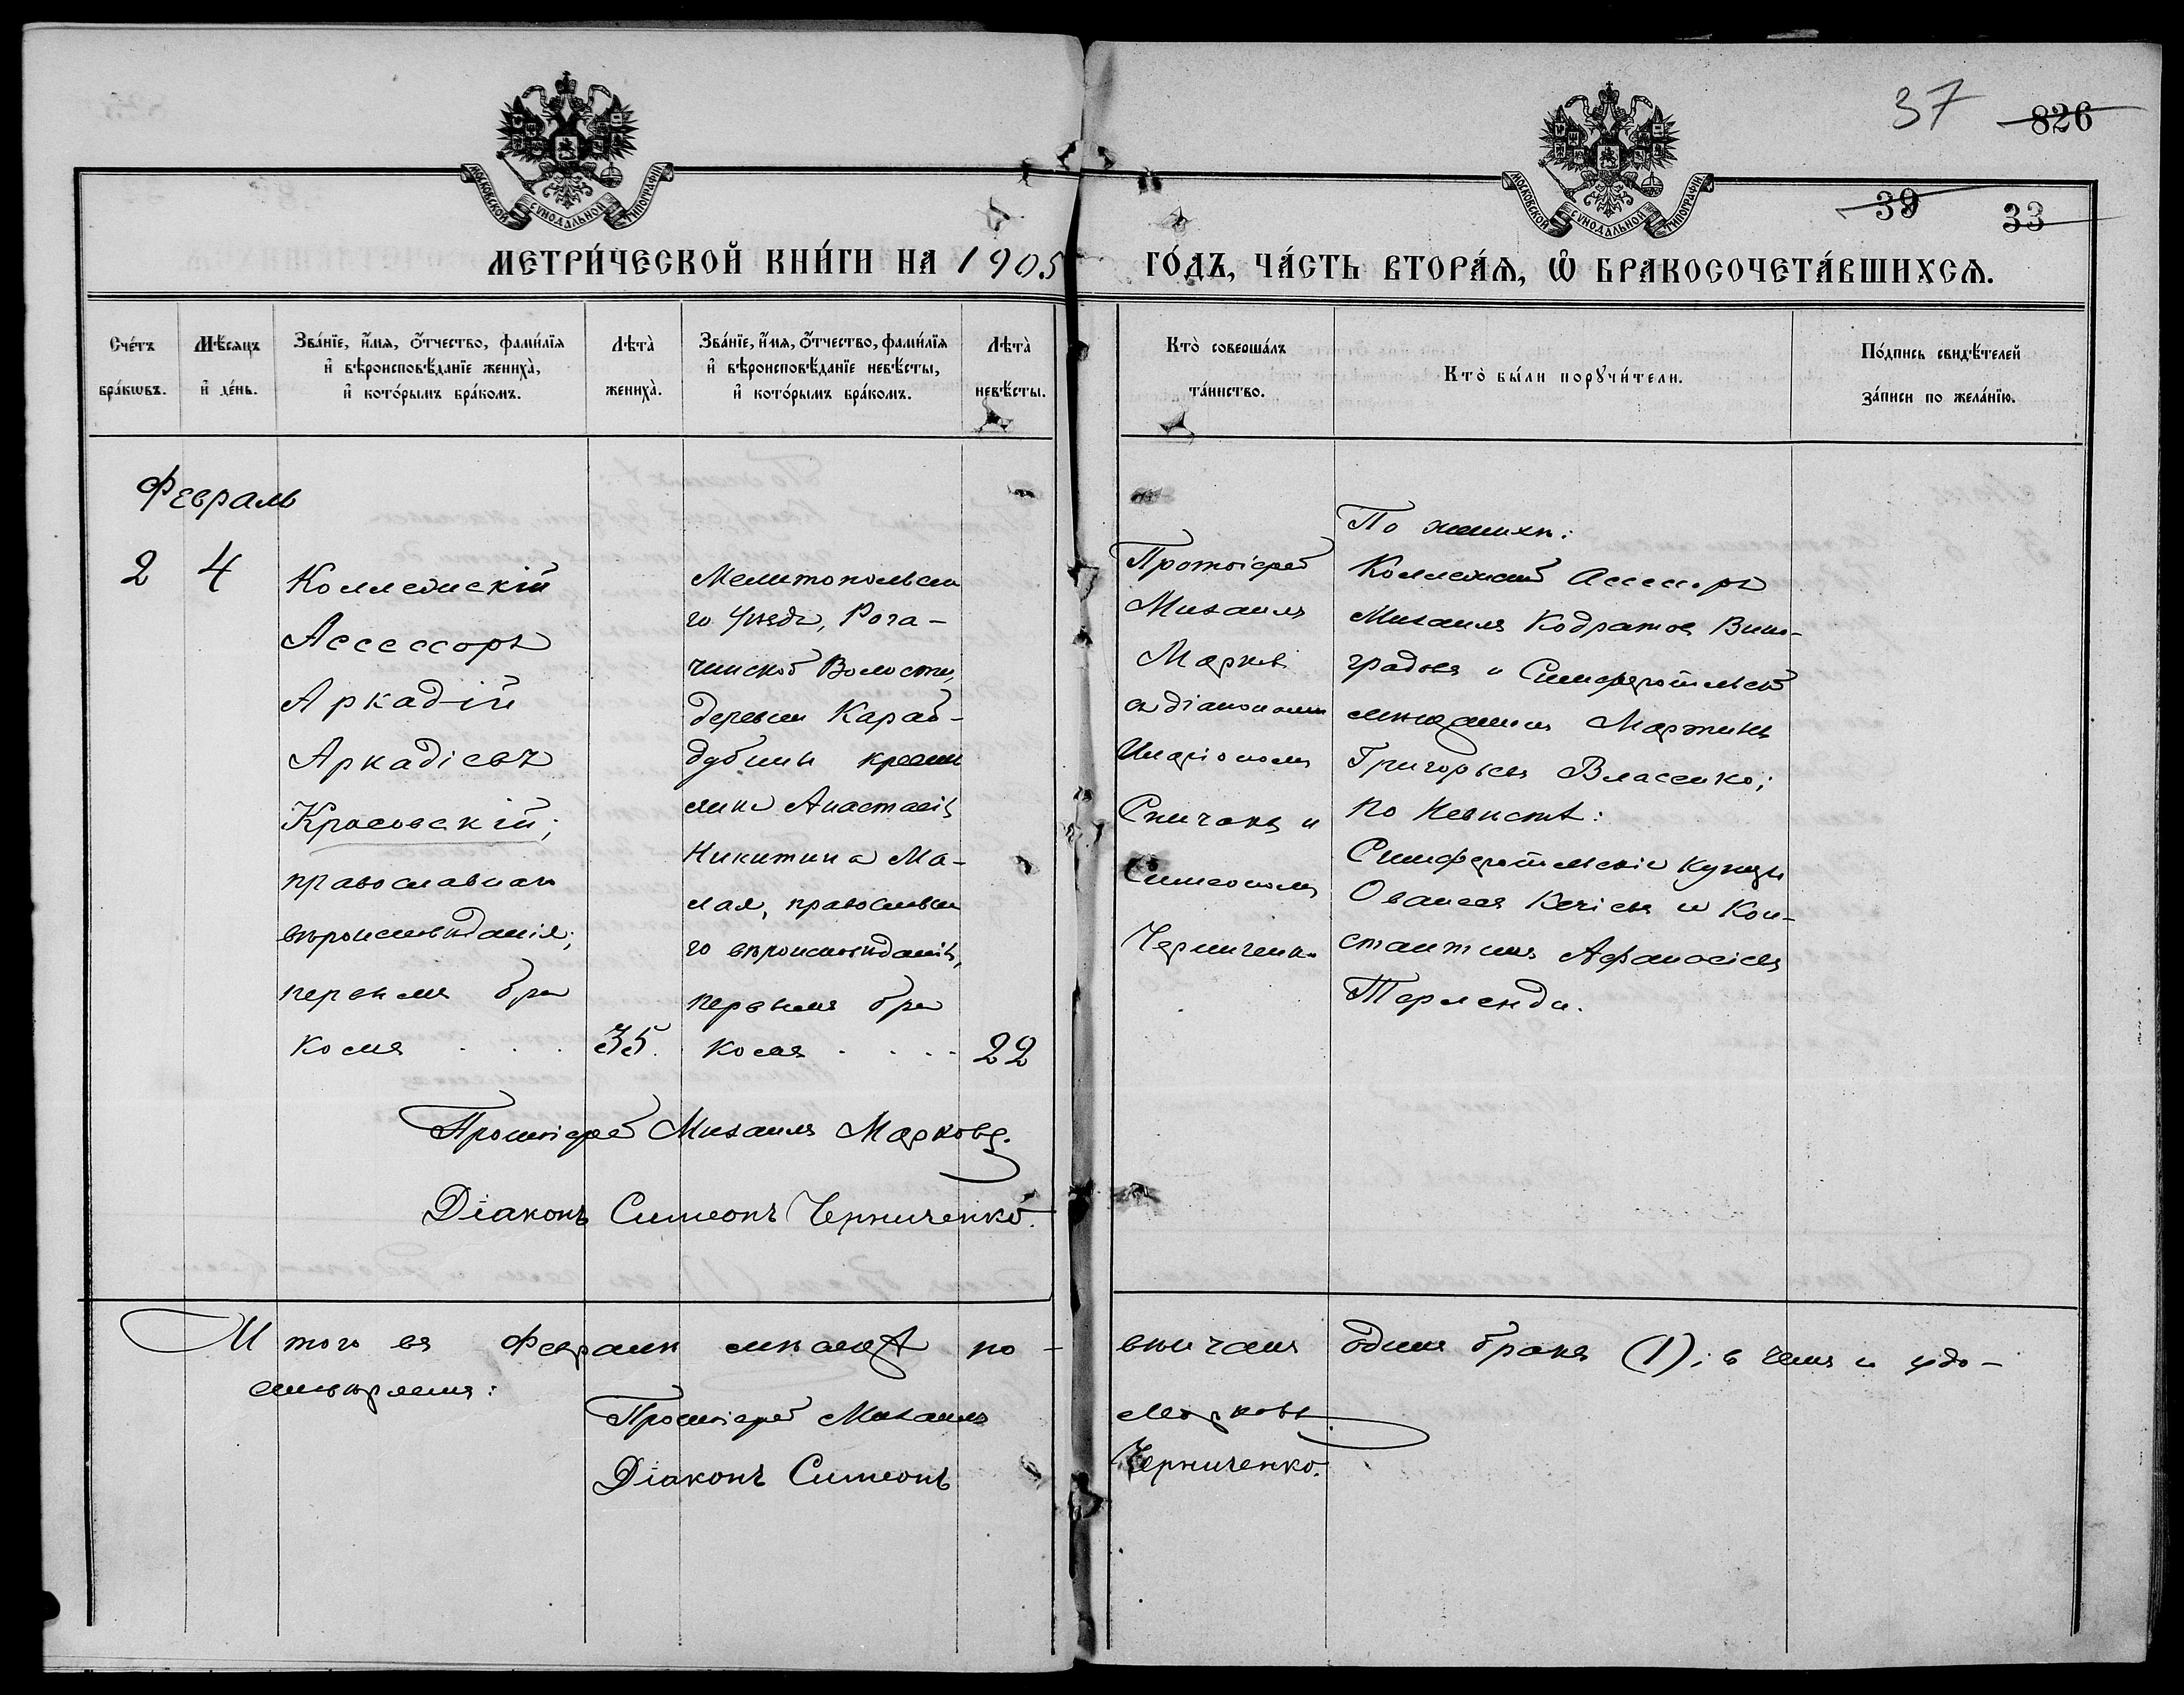 37 826
39 33
МОСКОВСКОЙ СѴНОДАЛЬНОЙ ТИПОГРАФІИ
МОСКОВСКОЙ СѴНОДАЛЬНОЙ ТИПОГРАФІИ
МЕТРИ́ЧЕСКОЙ КНИ́ГИ НА 1905 ГО́ДЪ, ЧА́СТЬ ВТОРА́Ѧ, Ѡ҆ БРАКОСОЧЕТА́ВШИХСѦ.
Сче́тъ
бра́кѡвъ.
Мѣ́сяцъ
и҆ де́нь.
Зва́нїе, и҆́мя, ѻ҆́тчество, фами́лїя
и҆ вѣроисповѣ́данїе жениха̀,
и҆ кото́рымъ бра́комъ.
Лѣта̀
жениха̀.
Зва́нїе, и҆́мя, ѻ҆́тчество, фами́лїя
и҆ вѣроисповѣ́данїе невѣ́сты,
и҆ кото́рымъ бра́комъ.
Лѣта̀
невѣ́сты.
Кто̀ соверша́лъ
та́инство.
Кто̀ бы́ли порꙋчи́тели.
По́дпись свидѣ́телей
за́писи по жела́нїю.
Февраль
2 4
Коллежскій
Ассессоръ
Аркадій
Аркадіевъ
Красовскій;
православнаго
вѣроисповѣданія;
первымъ бра
комъ . . . 35.
Мелитопольска
го уѣзда, Рога-
чикской Волости,
деревни Карай-
дубины крестьян
Анастасія
Никитина Ма-
лая, православна
го вѣроисповѣданія,
первымъ бра
комъ . . . . 22
Протоіерей
Михаилъ
Марковъ
съ діаконами
Иларіономъ
Спичака и
Симеономъ
Черниченко
По женихѣ:
Коллежскій Ассессоръ
Михаилъ Кодратовъ Вино-
градовъ и Симферопольскій
мѣщанинъ Мартинъ
Григорьевъ Власенко;
по Невѣстѣ:
Симферопольскіе купцы
Ованесъ и Кон-
стантинъ Афанасіевъ
Терленди.
Протоіерей Михаилъ Марковъ.
Діаконъ Симеонъ Черниченко.
Итого въ Февралѣ мѣсяцѣ по-вѣнчанъ одинъ бракъ (1); въ чемъ и удо-
стовѣряемъ:
Протоіерей Михаилъ Марковъ.
Діаконъ Симеонъ Черниченко.